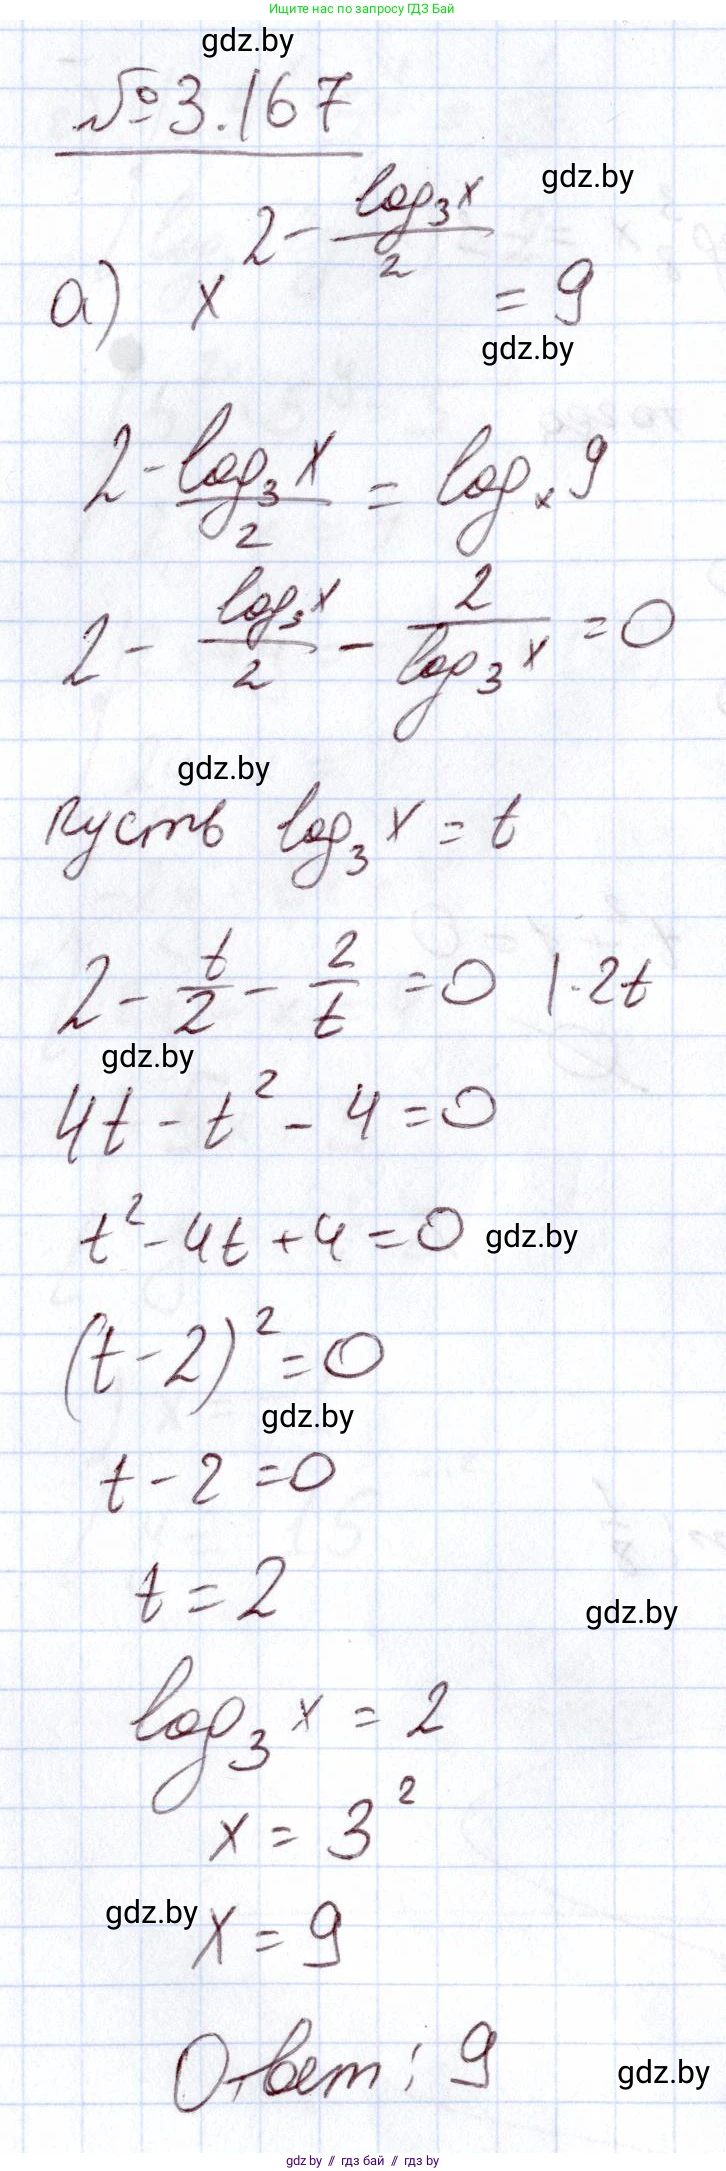 Ищите нас по запросу ГДЗ Бай
gdz.by
№ 3.167
gdz.by
а) x^(2 - log₃x/2) = 9
gdz.by
2 - log₃x/2 = logₓ9
2 - log₃x/2 - 2/log₃x = 0
gdz.by
пусть log₃x = t
2 - t/2 - 2/t = 0 |·2t
gdz.by
4t - t² - 4 = 0
t² - 4t + 4 = 0 gdz.by
(t - 2)² = 0
gdz.by
t - 2 = 0
t = 2
gdz.by
log₃x = 2
x = 3²
gdz.by
x = 9
Ответ: 9
gdz.by
gdz.by // гдз бай // gdz.by